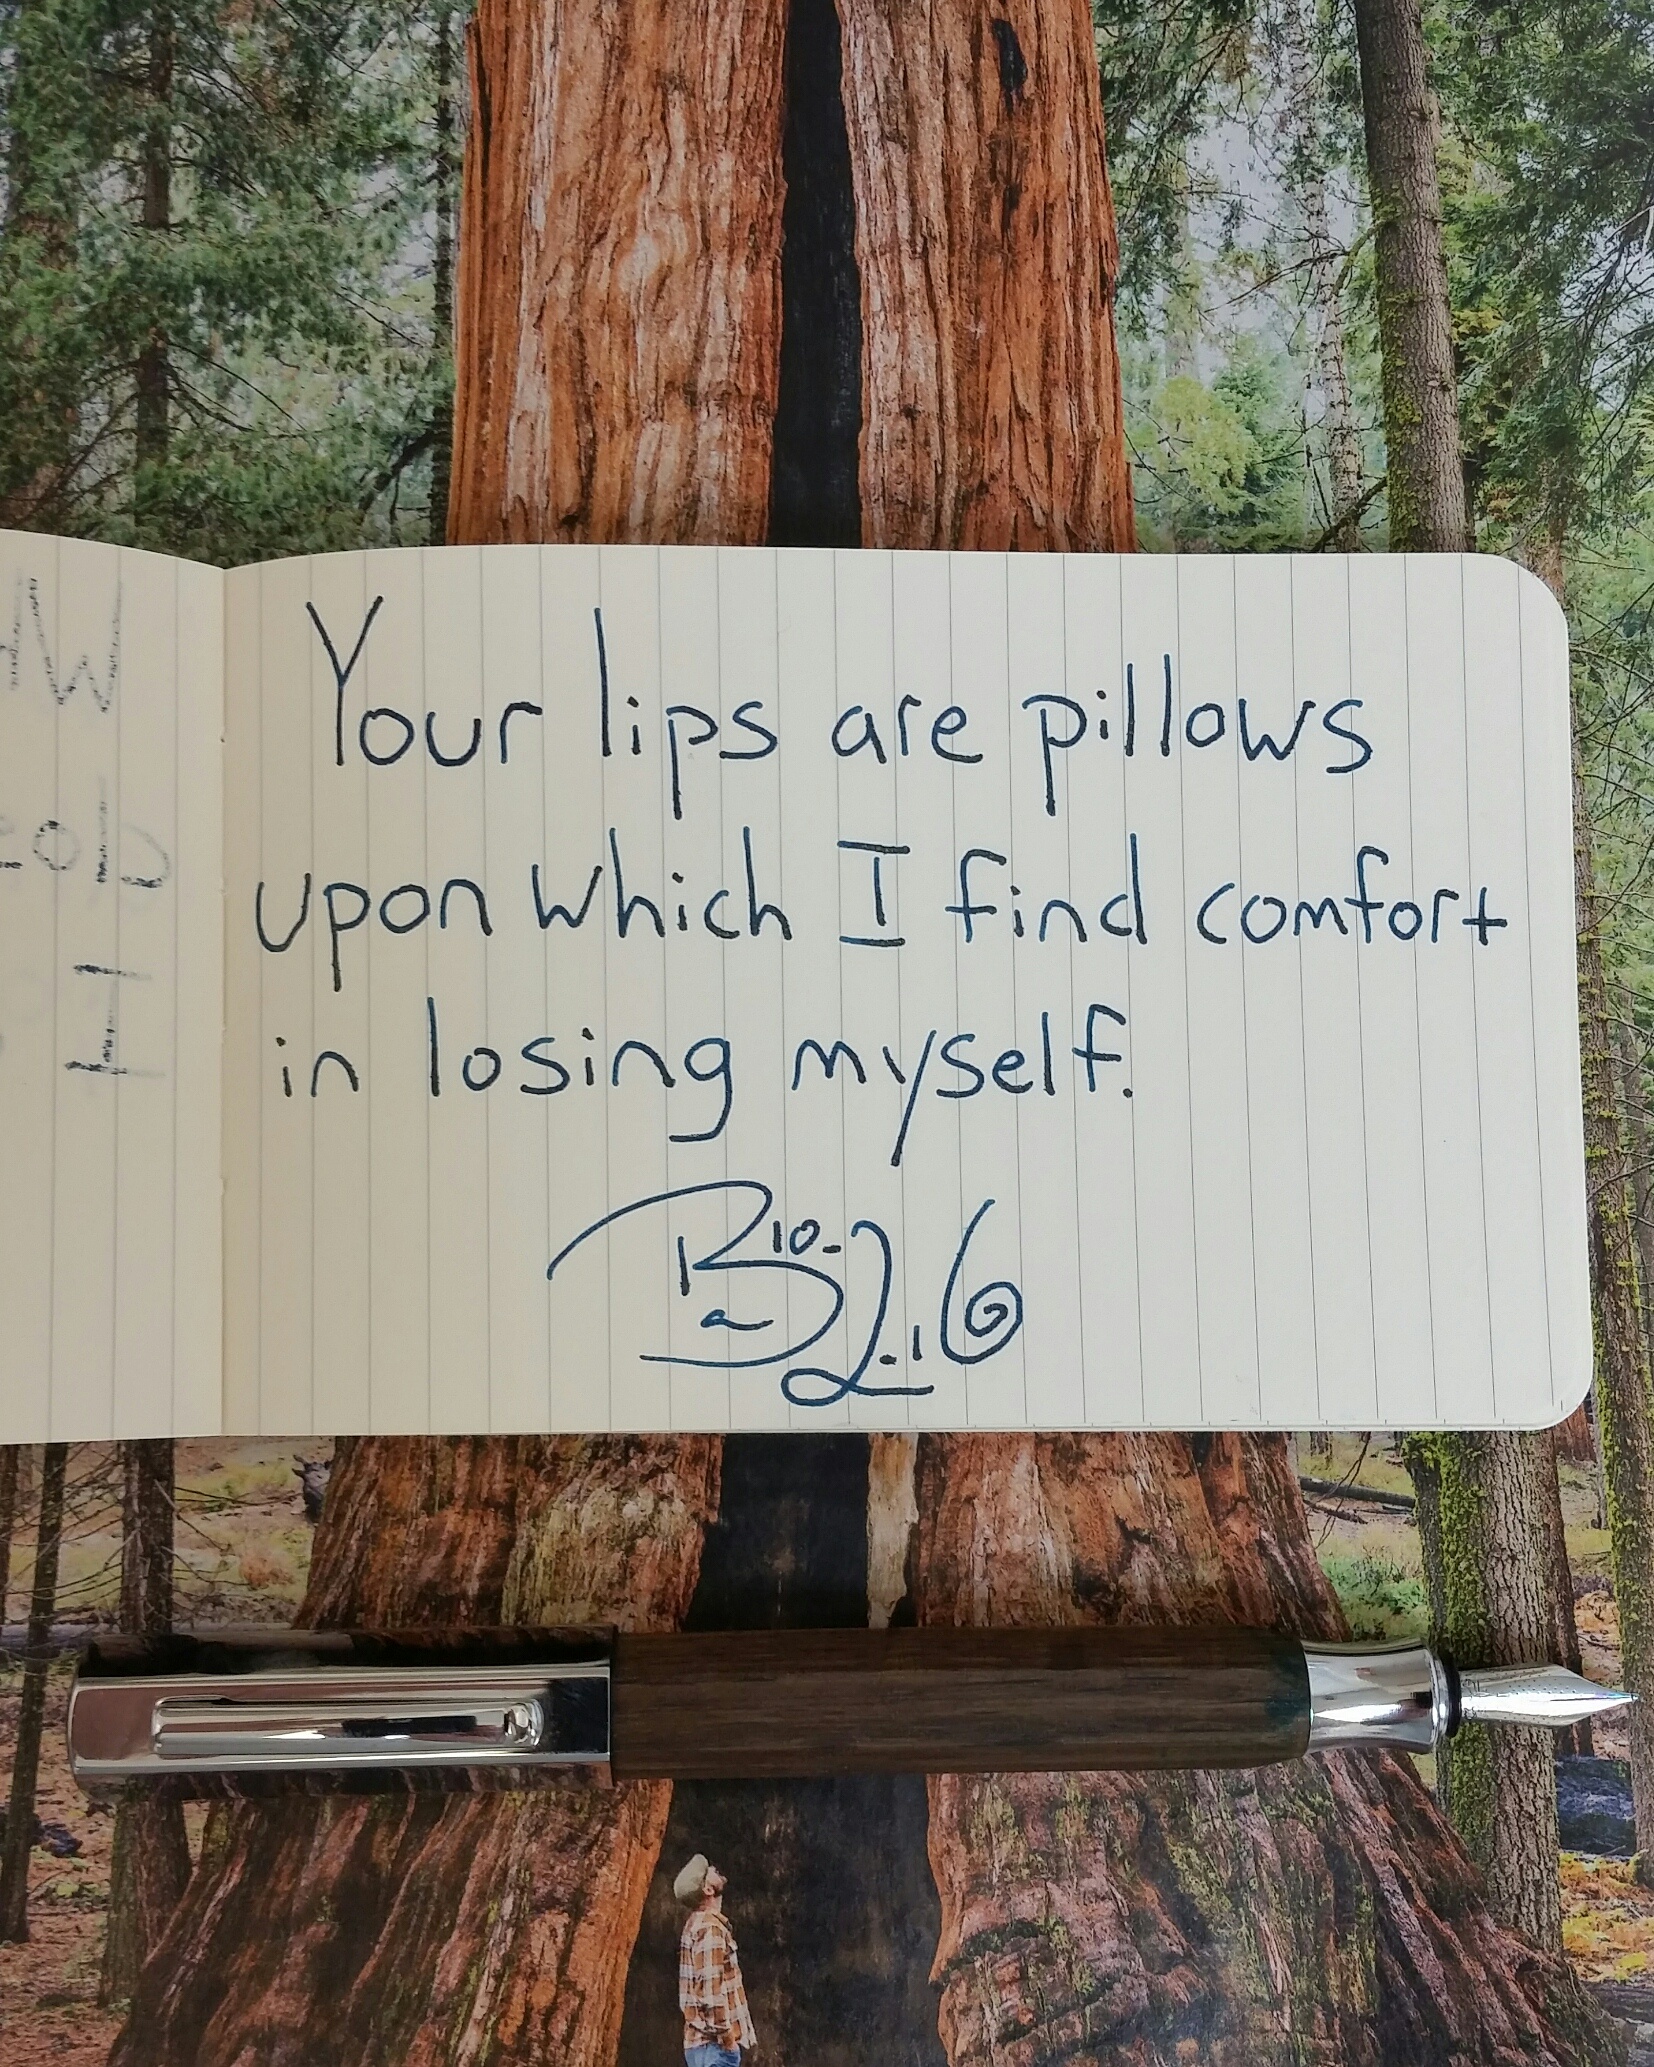 Your lips are pillows
upon which I find comfort
in losing myself.